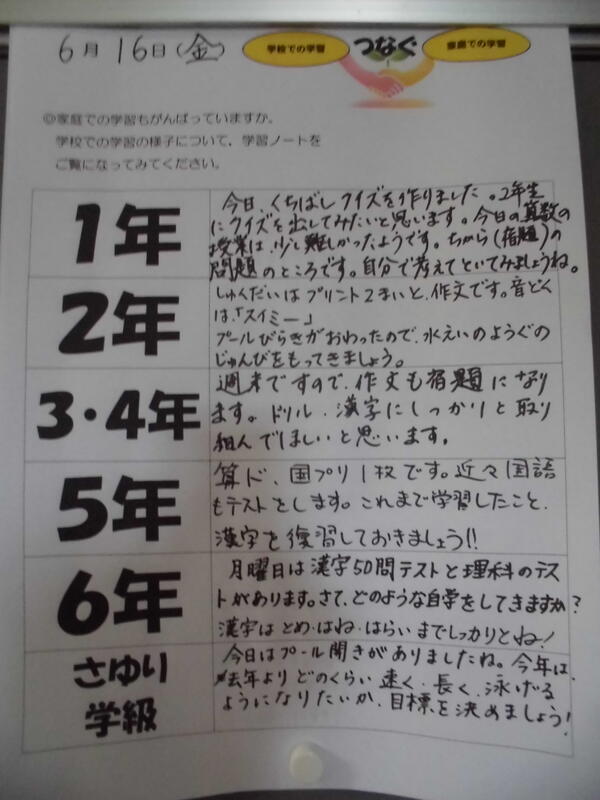 6月16日(金)
学校での学習 つなぐ 家庭での学習
◎家庭での学習もがんばっていますか。
学校での学習の様子について、学習ノートを
ご覧になってみてください。
1年
今日、くちばしクイズを作りました。2年生
にクイズを出してみたいと思います。今日の算数の
授業は、少し難しかったようです。ちから(宿題)の
問題のところです。自分で考えてといてみましょうね。
2年
しゅくだいはプリント2まいと、作文です。音どく
は、「スイミー」
プールびらきがおわったので、水えいのようぐの
じゅんびをもってきましょう。
3・4年
週末ですので、作文も宿題になり
ます。ドリル、漢字にしっかりと取り
組んでほしいと思います。
5年
算ド、国プリ1枚です。近々国語
もテストをします。これまで学習したこと、
漢字を復習しておきましょう!!
6年
月曜日は漢字50問テストと理科のテス
トがあります。さて、どのような自学をしてきますか?
漢字はとめ・はね・はらいまでしっかりとね!
さゆり
学級
今日はプール開きがありましたね。今年は、
去年よりどのくらい速く、長く、泳げる
ようになりたいか、目標を決めましょう!